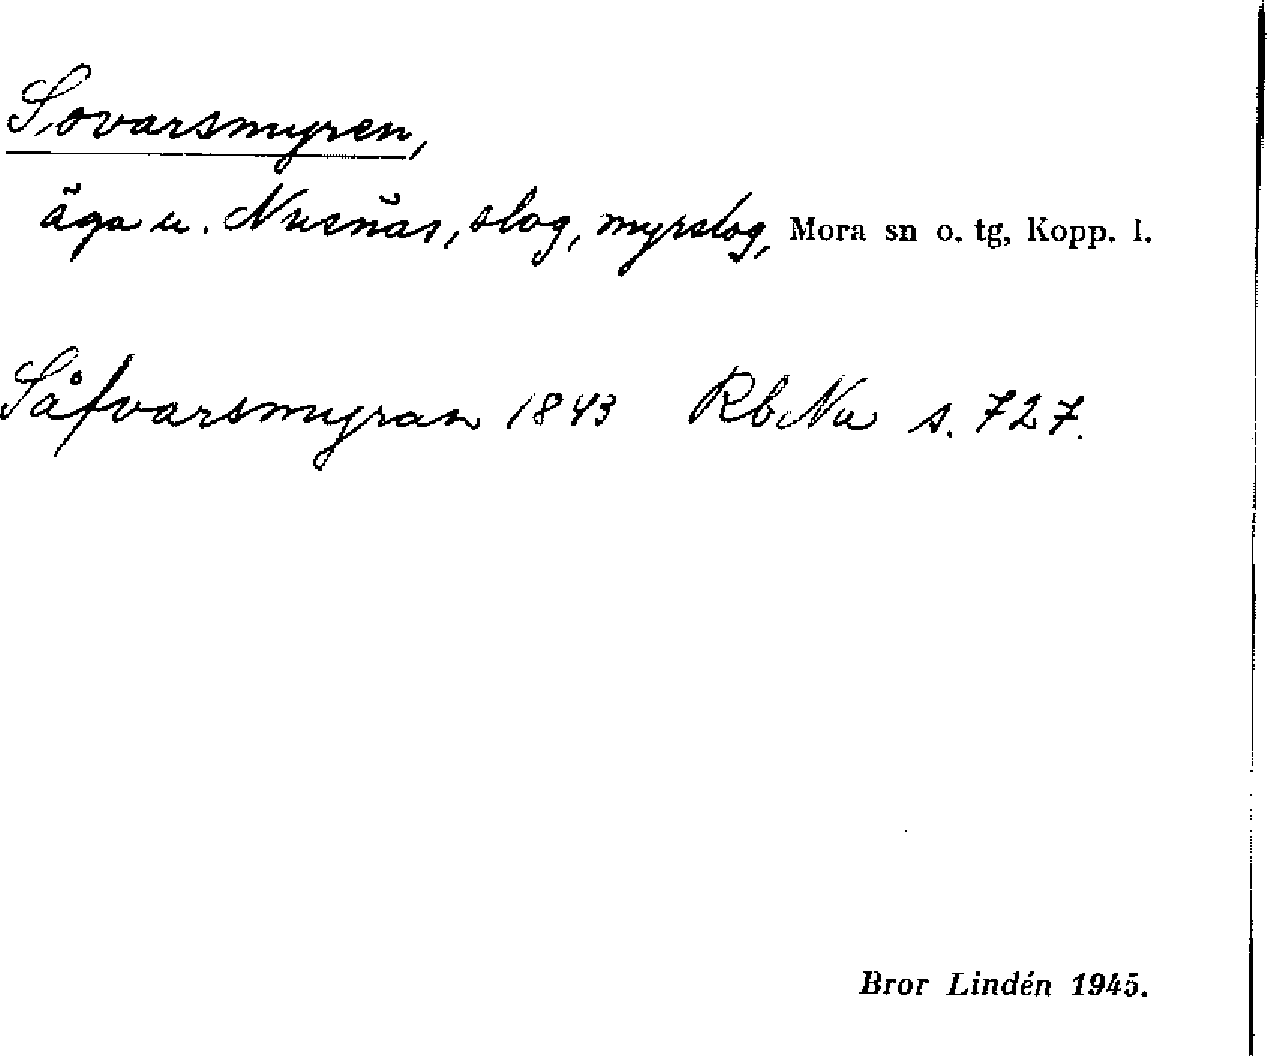 Sovarsmyren,
äga u. Nusnäs, slog, myrslog, Mora sn o. tg, Kopp. l.
Såfvarsmyran 1843 RbNu s. 727.
Bror Lindén 1945.